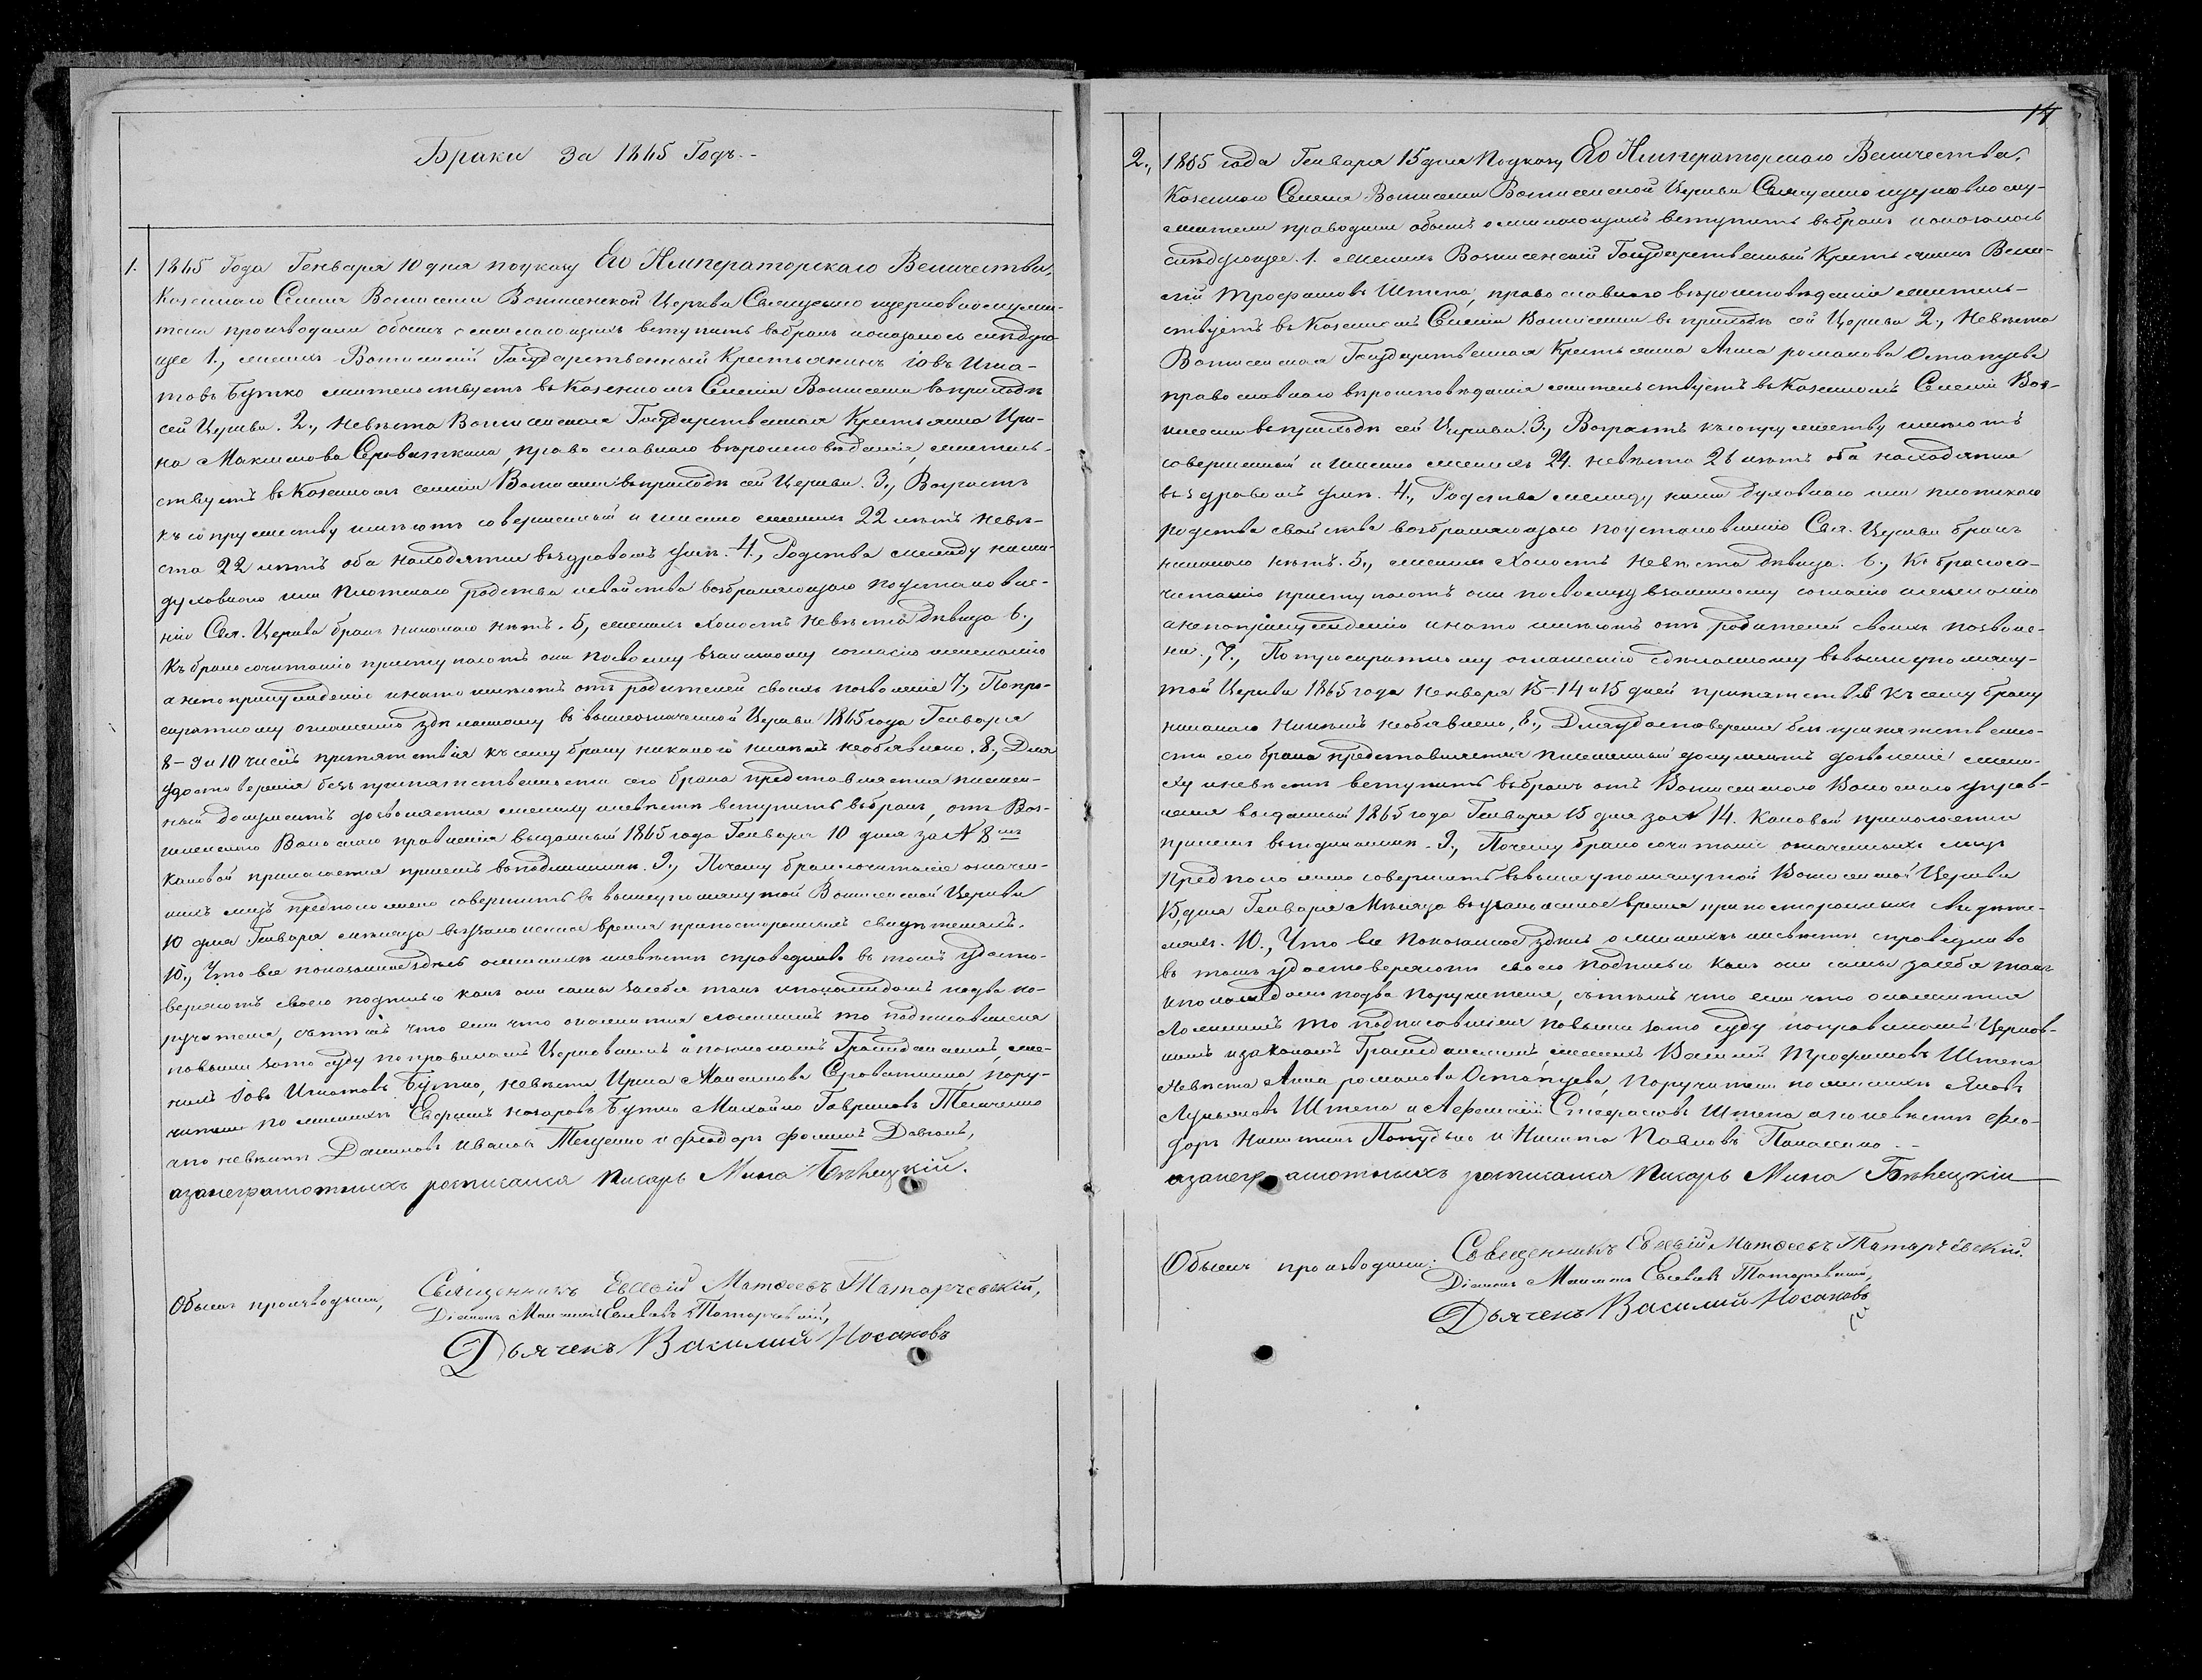 Браки За 1865 Годъ. -
1. 1865 Года Генваря 10 дня по указу Его Императорскаго Величества,
Казеннаго Селенія Вознесенки Вознесенской Церкви Священно церковно служи-
тели производили обыскъ о желающихъ вступить въ бракъ и оказалось слѣдую-
щее 1., женихъ Вознесенскій Государственный Крестьянинъ Іовъ Игна-
товъ Бутко жительствуетъ въ Казенномъ Селеніи Вознесенки въ приходѣ
сей Церкви. 2., Невѣста Вознесенская Государственная Крестьянка Ири-
на Максимова Сероваткина, православнаго вѣроисповѣданія, житель-
ствуетъ въ Казенномъ селеніи Вознесенки въ приходѣ сей Церкви. 3., Возрастъ
къ супружеству имѣютъ совершенный и именно женихъ 22 лѣтъ невѣ-
ста 22 лѣтъ оба находятся въ здравомъ умѣ. 4., Родства между ними
духовнаго или плотскаго родства и свойства возбраняющаго по установле-
нію Свя. Церкви бракъ никакого нѣтъ. 5, женихъ Холостъ Невѣста дѣвица 6.,
Къ бракосочитанію приступаютъ они по своему взаимному согласію и желанію
а не по принужденію и на то имѣютъ отъ родителей своихъ позволеніе 7., По тро-
екратному оглашенію здѣланному въ вышеозначенной Церкви 1865 года Генваря
8 - 9 и 10 числъ препятствія къ сему браку никакого никѣмъ не объявлено. 8., Для
удостоверенія безъпрепятственности сего брака представляется письмен-
ный документъ дозволяется жениху и невѣстѣ вступить въ бракъ, отъ Воз-
несенскаго Волостнаго правленія выданный 1865 года Генваря 10 дня за № 8мъ
каковой прилагается при семъ въ подлинникѣ. 9., Почему бракосочитаніе означен-
ныхъ лицъ предположено совершить въ вышеупомянутой Вознесенской Церкви
10 дня Генваря мѣсяца въ узаконенное время при постороннихъ свидѣтеляхъ.
10., Что все показанное здѣсь о женихѣ и невѣстѣ справедливо въ томъ удосто-
веряютъ своею подписью какъ они сами за себя такъ и по каждомъ по два по-
ручителя, съ тѣмъ что если что окажется ложнымъ то подписавшіеся
повинны за то суду по правиламъ Церковнымъ и по законамъ Гражданскимъ, же-
нихъ Іовъ Игнатовъ Бутко, невѣста Ирина Максимова Сероваткина, пору-
чители по женихѣ Ефремъ назаровъ Бутко Михайло Гавриловъ Теличенко
а по невѣстѣ Данилъ Ивановъ Тещенко и Феодоръ фоминъ Довгаль,
а за неграмотныхъ росписался Писарь Мина Бѣнецкій.
Обыскъ производили, Священникъ Евсевій Матѳеевъ Татарчевскій,
Діаконъ Максимъ Евсеевъ Татарчевскій,
Дьячекъ Василий Носановъ
14
2., 1865 года Генваря 15 дня По указу Его Императорскаго Величества,
Казеннаго Селенія Вознесенки Вознесенской Церкви Священно церковно слу-
жители праводили обыскъ о желающихъ вступить въ бракъ и оказалось
слѣдующее. 1. женихъ Вознесенскій Государственный Крестьянинъ Васи-
лій Трофимовъ Штепа, православнаго вѣроисповѣданія житель-
ствуетъ въ Казенномъ Селеніи Вознесенки въ приходѣ сей Церкви 2., Невѣста
Вознесенская Государственная Крестьянка Анна романова Остапцева
православнаго вѣроисповѣданія жительствуетъ въ Казенномъ Селеніи Воз-
несенки въ приходѣ сей Церкви. 3., Возрастъ къ супружеству имѣютъ
совершенный и именно женихъ 24. невѣста 21 лѣтъ оба находятся
въ здравомъ умѣ. 4., Родства между ними духовнаго или плотскаго
родства свойства возбраняющаго по установленію Свя. Церкви бракъ
никакого нѣтъ. 5., женихъ Холостъ Невѣста дѣвица. 6., Къ бракосо-
читанію приступаютъ они по своему взаимному согласію и желанію
а не по принужденію и на то имѣютъ отъ родителей своихъ позволе-
ніе., 7., По троекратному оглашенію сдѣланному въ вышеупомяну-
той Церкви 1865 года генваря 13 - 14 и 15 дней препятствія къ сему браку
никакого никѣмъ не объявлено, 8., Для удостоверенія безпрепятственно-
сти сего брака представляется писменный документъ дозволеніе жени-
ху и невѣстѣ вступить въ бракъ отъ Вознесенскаго Волостнаго управ-
ленія выданный 1865 года Генваря 15 дня за № 14. Каковый прилогается
при семъ въ подлинникѣ. 9., Почему бракосочитаніе означенныхъ лицъ
Предположено совершить въ вышеупомянутой Вознесенской Церкви
15, дня Генваря Мѣсяца въ узаконенное время при постороннихъ свидѣте-
ляхъ. 10., Что все показанное здѣсь о женихѣ и невѣстѣ справедливо
въ томъ удостоверяютъ своею подписью какъ они сами за себя такъ
и по каждомъ по два Поручителя, съ тѣмъ что если что окажется
ложнымъ то подписавшіеся повинны за то суду по правиламъ Церков-
нымъ и законамъ Гражданскимъ женихъ Василій Трофимовъ Штепа
Невѣста Анна романова Остапцева, Поручители по женихѣ Яковъ
Лукьяновъ Штепа и Афанасій Стефановъ Штепа а по невѣстѣ Фео-
доръ Никитинъ и Никита Павловъ Панасенко - -
а за неграмотныхъ росписался Писарь Мина Бѣнецкій
Обыскъ производили: Священникъ Евсевій Матѳеевъ Татарчевскій.
Діаконъ Максимъ Евсеевъ Татарчевскій,
Дьячекъ Василий Носановъ